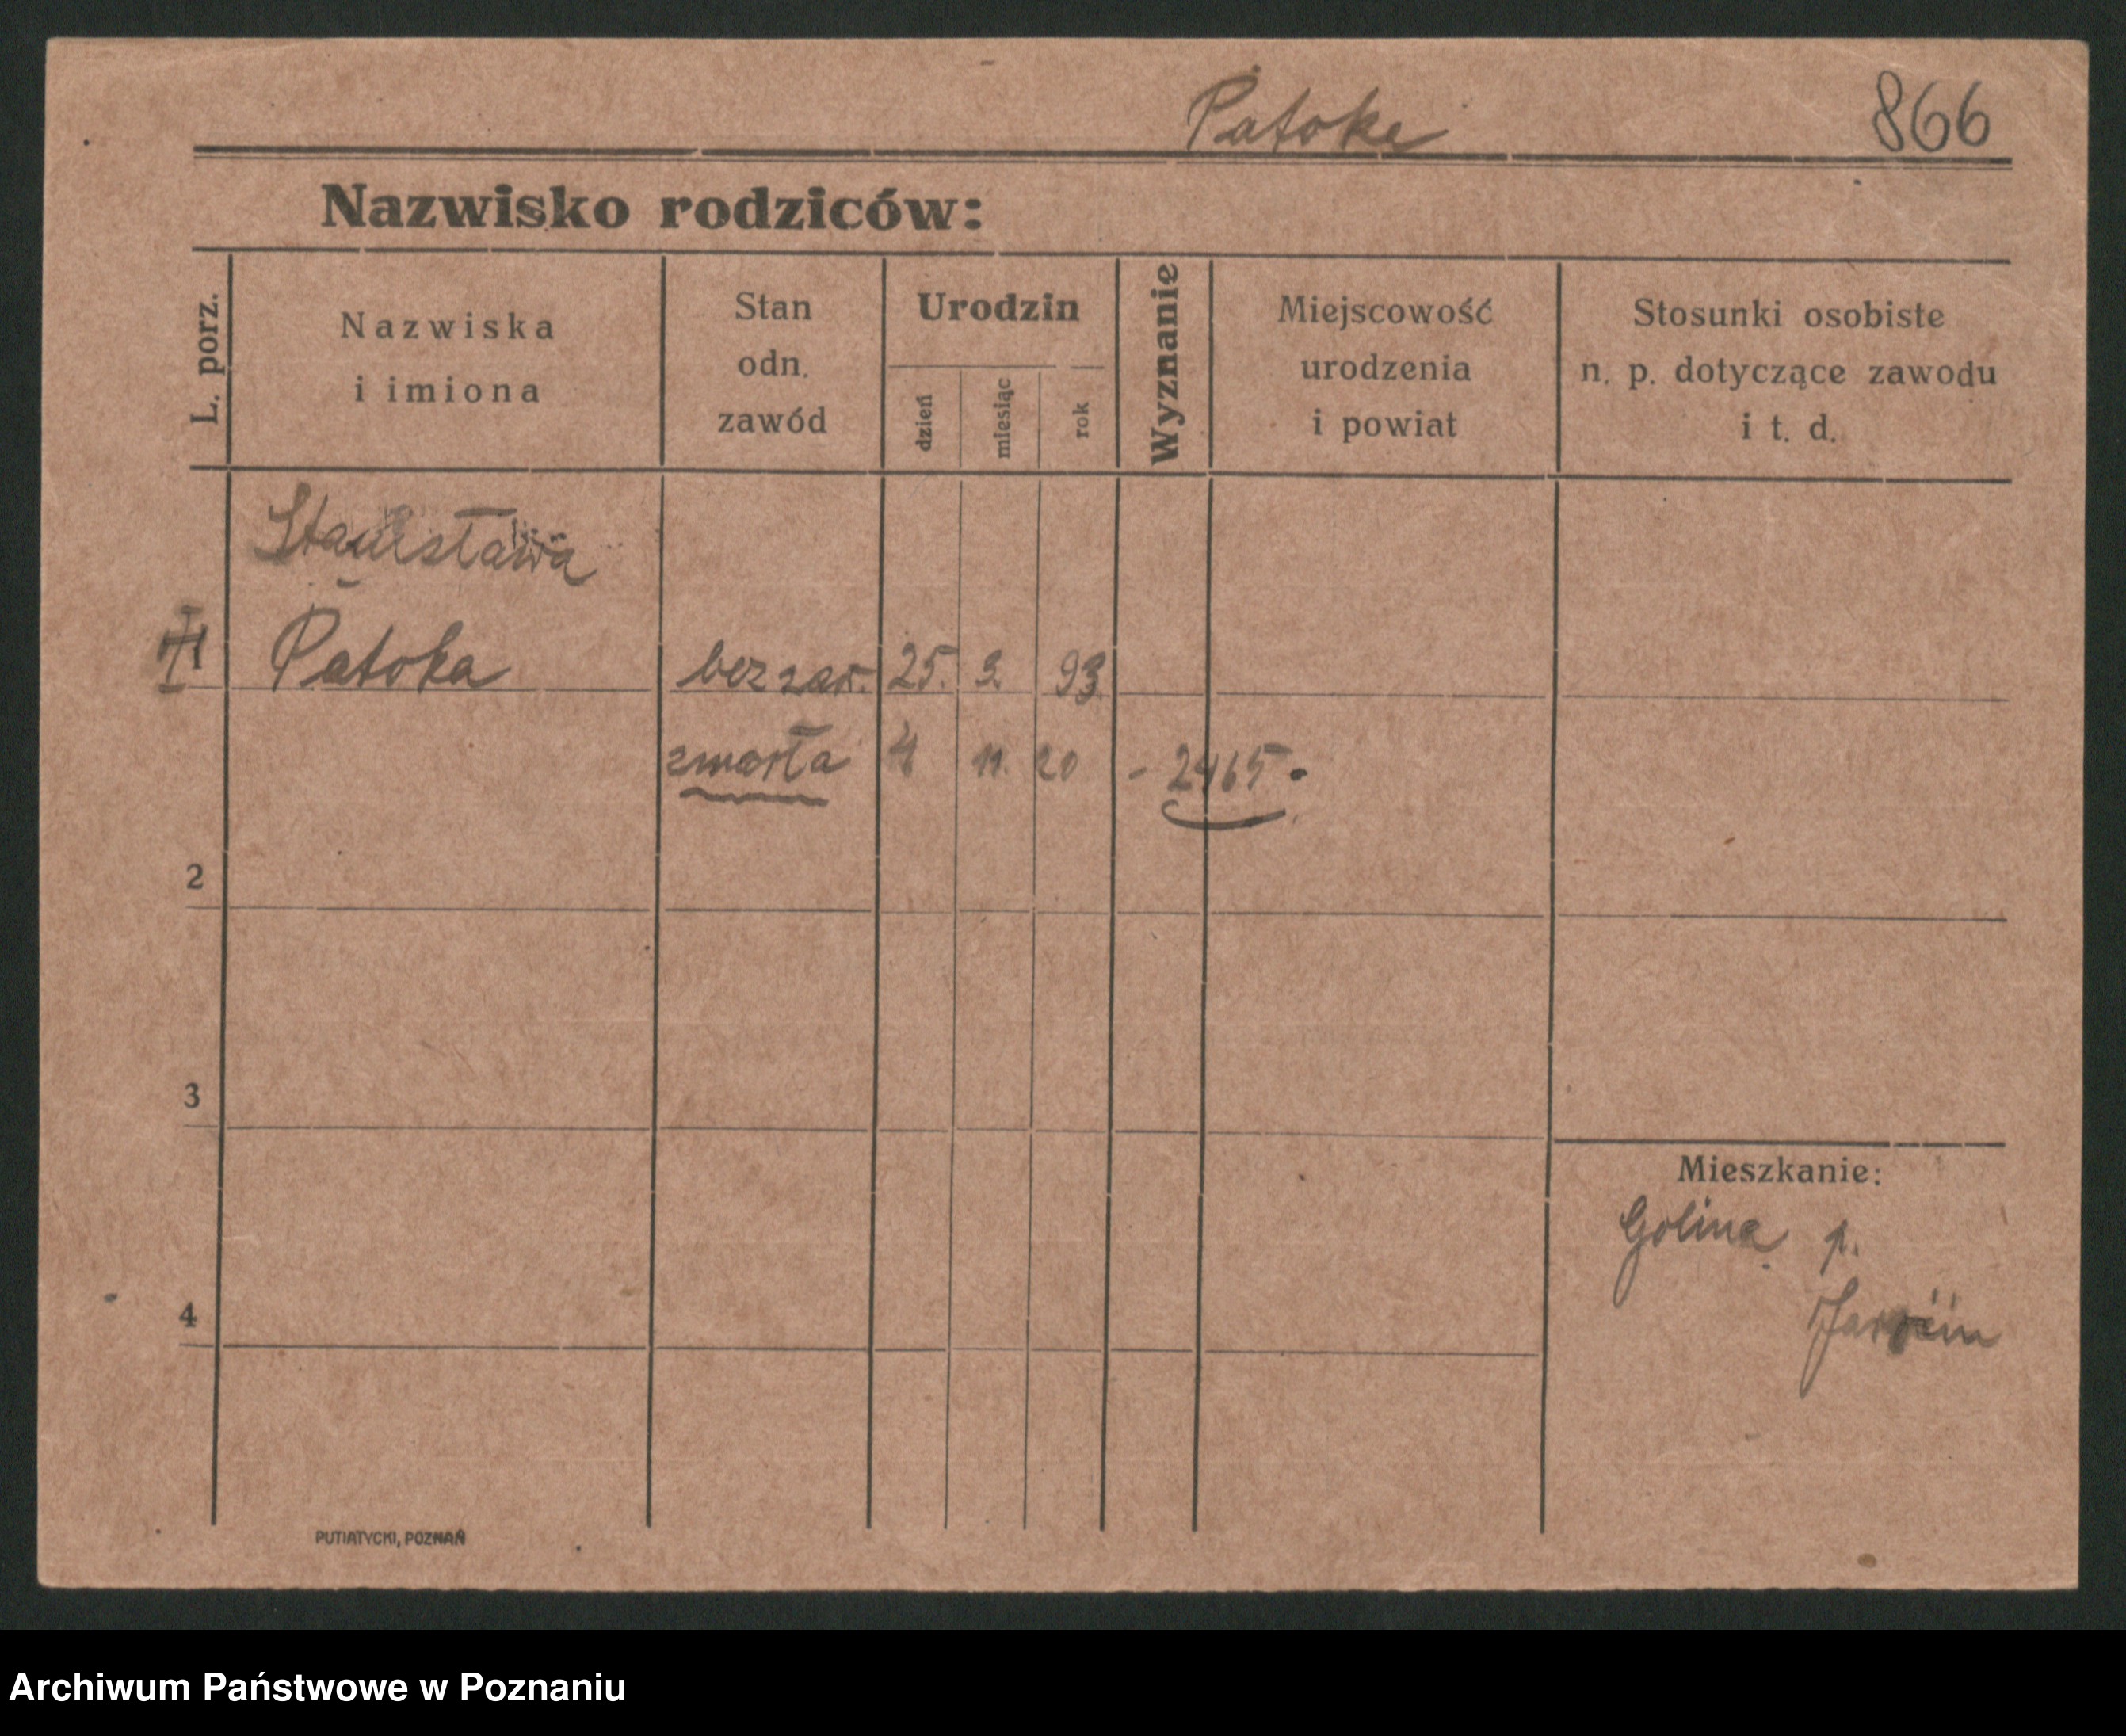 Patoka 866
Nazwisko rodziców:
L. porz.
Nazwiska
i imiona
Stan
odn.
zawód
Urodzin
dzień
miesiąc
rok
Wyznanie
Miejscowość
urodzenia
i powiat
Stosunki osobiste
n. p. dotyczące zawodu
i t. d.
Stanisława
1 Patoka bez zaw. 25. 9. 93.
zmarła 4 11. 20 - 2465 -
2
3
4
Mieszkanie:
Golina p.
PUTIATYCKI, POZNAŃ
Archiwum Państwowe w Poznaniu